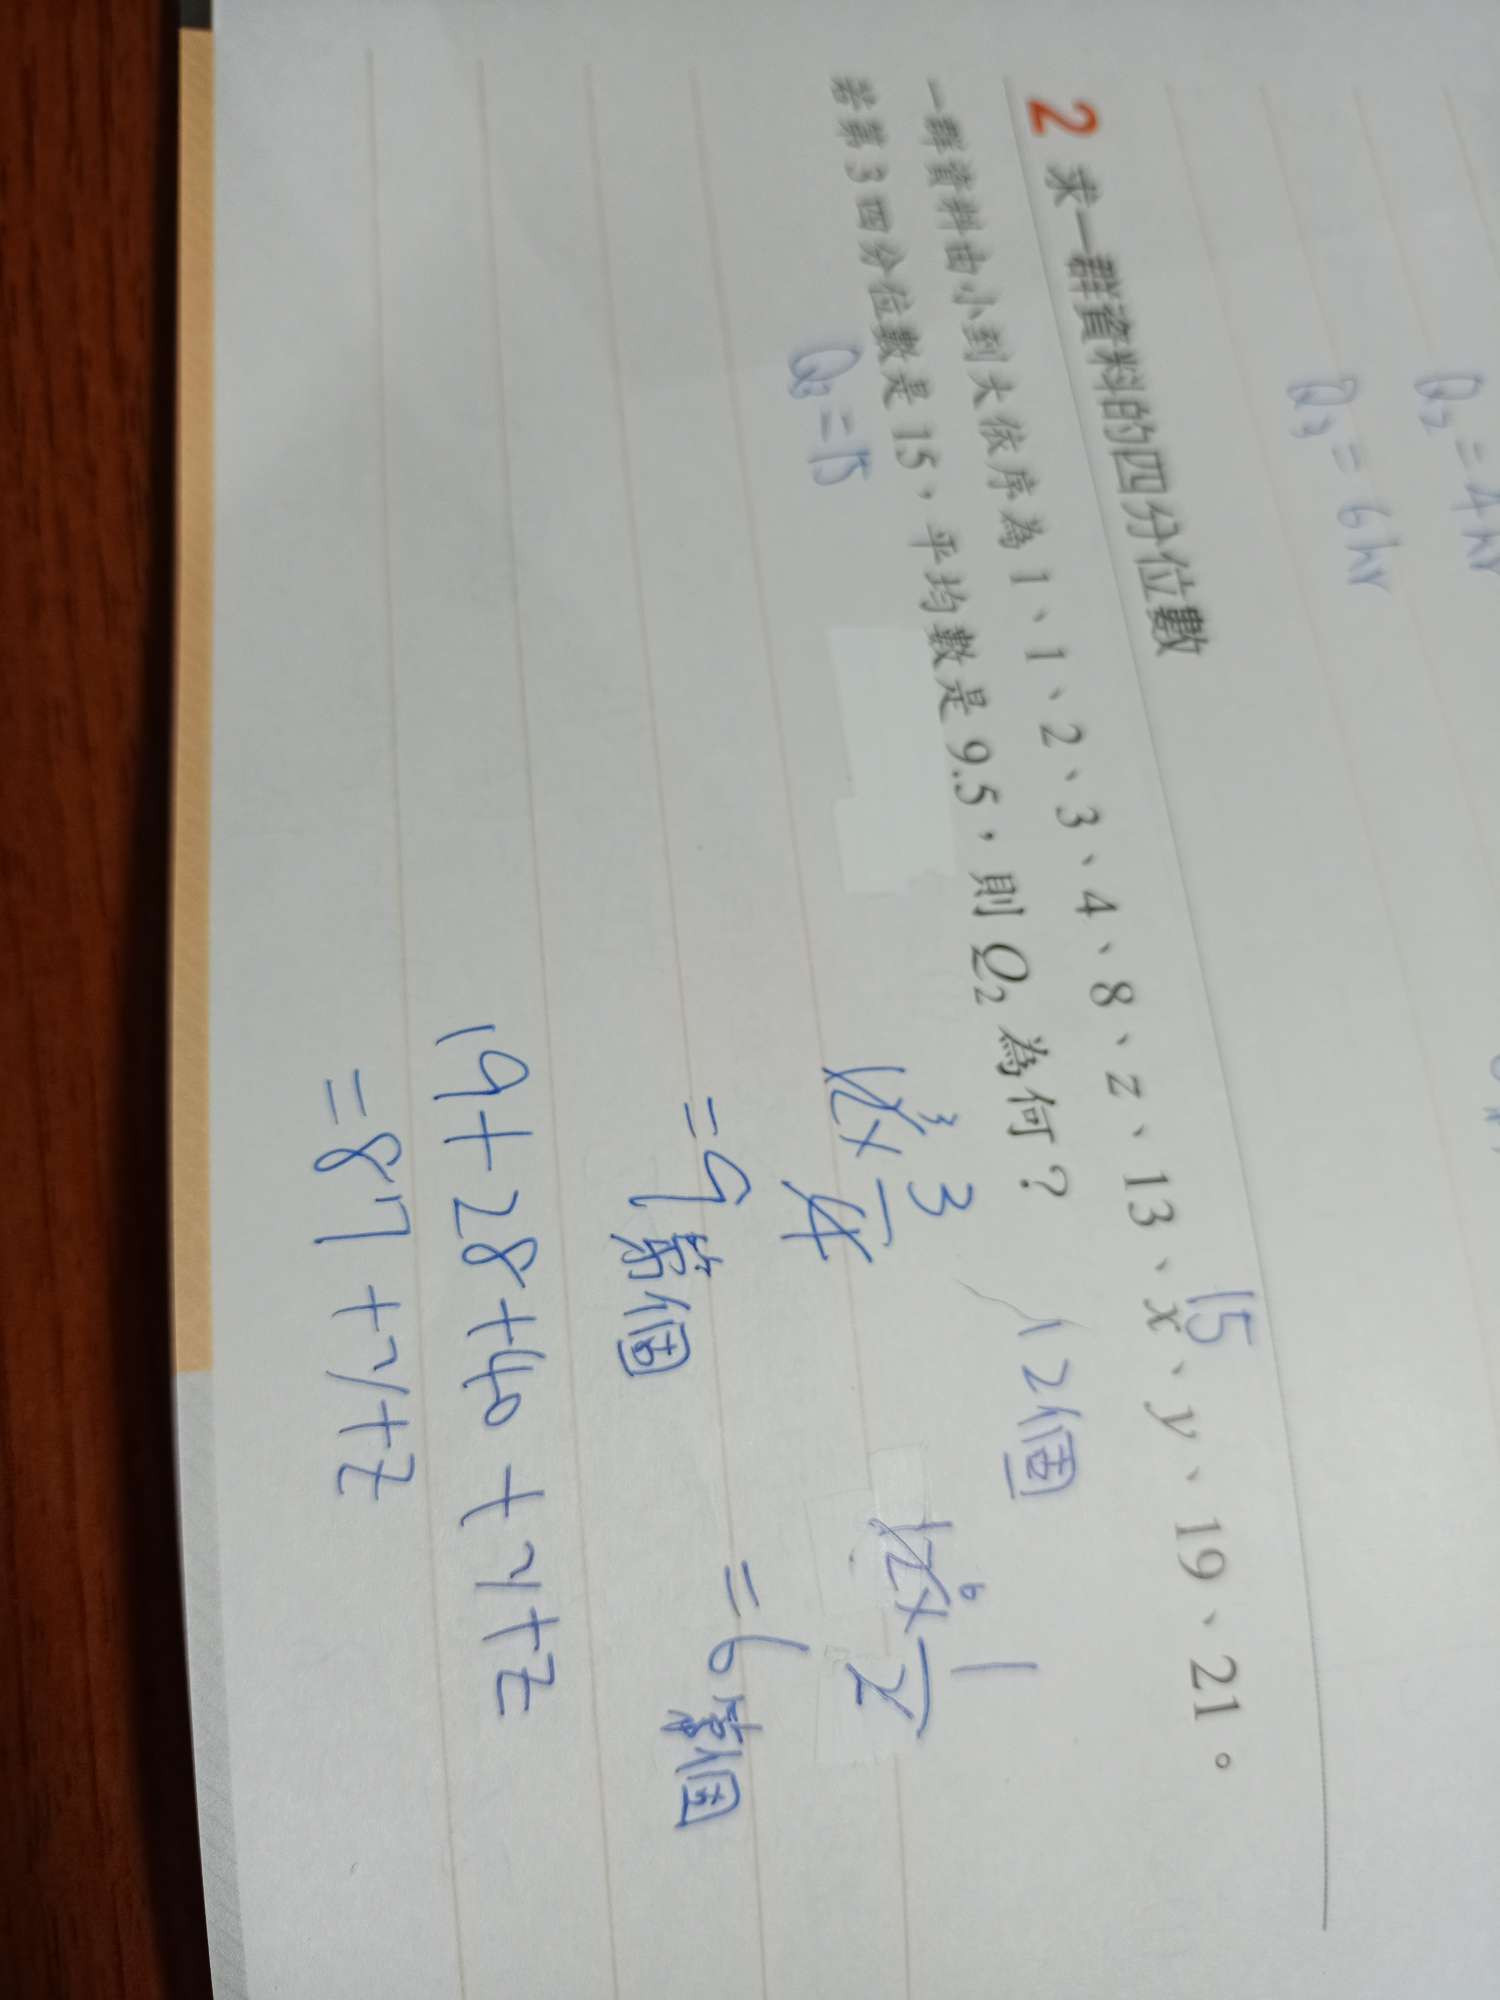 Q₂ = 4hr
Q₃ = 6hr
2 求一群資料的四分位數
一群資料由小到大依序為 1、1、2、3、4、8、z、13、x、y、19、21。
15
若第 3 四分位數是 15，平均數是 9.5，則 Q₂ 為何？
12個
Q₃=15
12 × 3/4
3
= 9 第個
12 × 1/2
6
= 6 第個
19+28+40+y+z
=87+y+z